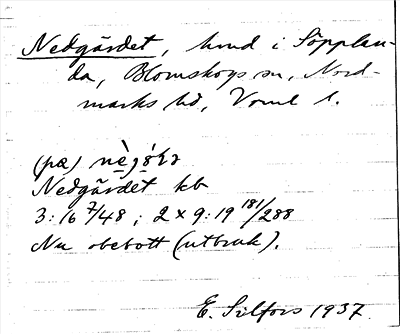 Nedgärdet, hmd i Söpplan-
da, Blomskogs sn, Nord-
marks hd, Vrml l.
(pa)
Nedgärdet kb
3:16 7/48; 2 x 9:19 181/288
Nu obebott (utbruk).
E. Silfors 1937.